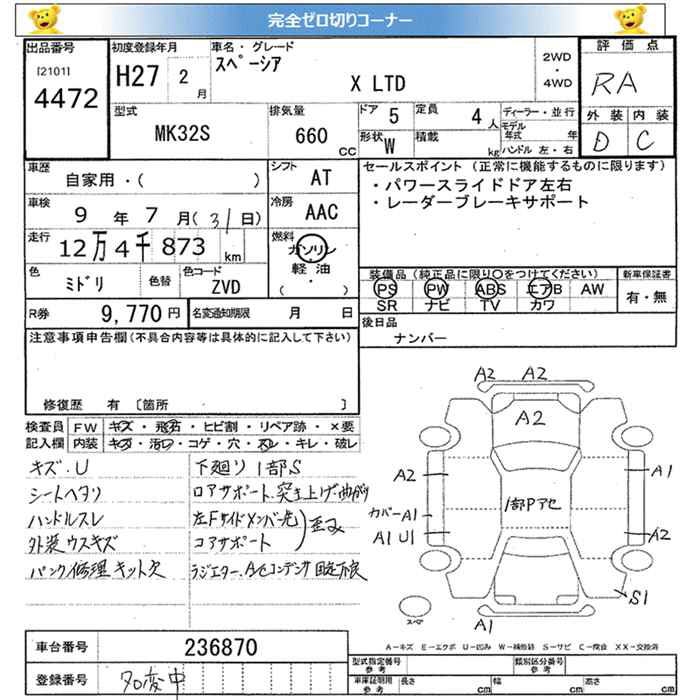 完全ゼロ切りコーナー
出品番号
[2101]
4472
初度登録年月
H27 2 月
車名・グレード
スペーシア
X LTD
2WD
・
4WD
評価点
RA
外装 内装
D C
型式
MK32S
排気量
660 CC
ドア 5
定員 4 人
形状 W
積載 kg
ディーラー・並行
モデル年式 年
ハンドル 左・右
車歴
自家用・( )
シフト
AT
車検
9 年 7 月 (31日)
冷房
AAC
走行
12万4千873 km
燃料
ガソリン
軽油
( ・ )
色
ミドリ
色替
色コード
ZVD
セールスポイント (正常に機能するものに限ります)
・パワースライドドア左右
・レーダーブレーキサポート
装備品 (純正品に限り○をつけてください)
PS PW ABS エアB AW
SR ナビ TV カワ
新車保証書
有・無
R券 9,770 円
名変通知期限 月 日
後日品
ナンバー
注意事項申告欄(不具合内容等は具体的に記入して下さい)
修復歴 有 [箇所 ]
検査員記入欄
FW キズ・飛石・ヒビ割・リペア跡・×要
内装 キズ・汚れ・コゲ・穴・スレ・キレ・破レ
キズ・U
シートヘタリ
ハンドルスレ
外装ウスキズ
パンク修理キット欠
下廻り1部S
ロアサポート突き上げ曲がり
左Fサイドメンバー先
コアサポート
歪み
ラジエター、A/Cコンデンサ固定不良
A2 A2
A2
A2
A1
1部Pアセ
カバーA1
A1 U1
A2
S1
スペア
A1
A-キズ E-エクボ U-凹み W-補修跡 S-サビ C-腐食 XX-交換済
車台番号
236870
登録番号
名変中
型式指定番号
参考
類別区分番号
参考
車庫証明用
参考
長さ cm
幅 cm
高さ cm